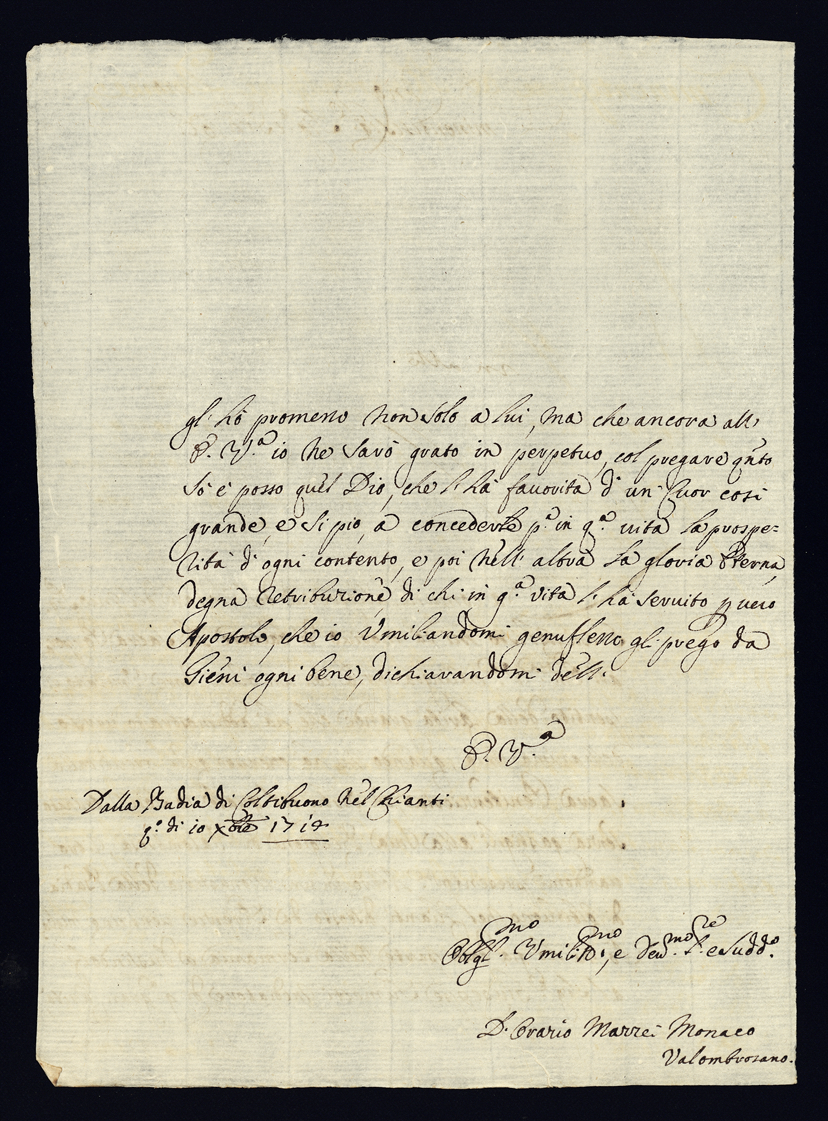 gl' hò promesso non solo a lui, ma che ancora all'
P. V.ª io ne sarò grato in perpetuo, col pregare qnto
sò e posso quel Dio, che l' hà favorita d' un Cuor così
grande, e si pio, a concederle p.ª in q.ª vita la prospe=
rità d' ogni contento, e poi nell' altra la gloria Eterna,
degna retribuzione di chi in q.ª vita l' hà servito p vero
Apostolo, che io Umiliandomi genuflesso gli prego da
Gieni ogni bene, dichiarandomi dell'
P. V.ª
Dalla Badia di Coltibuono nel Chianti
q.º di 10 Xbre
Obblg.mo Umiliss.mo, e Dev.mo S.re e Sudd.º
D. Orazio Marzei Monaco
Valombrosano.